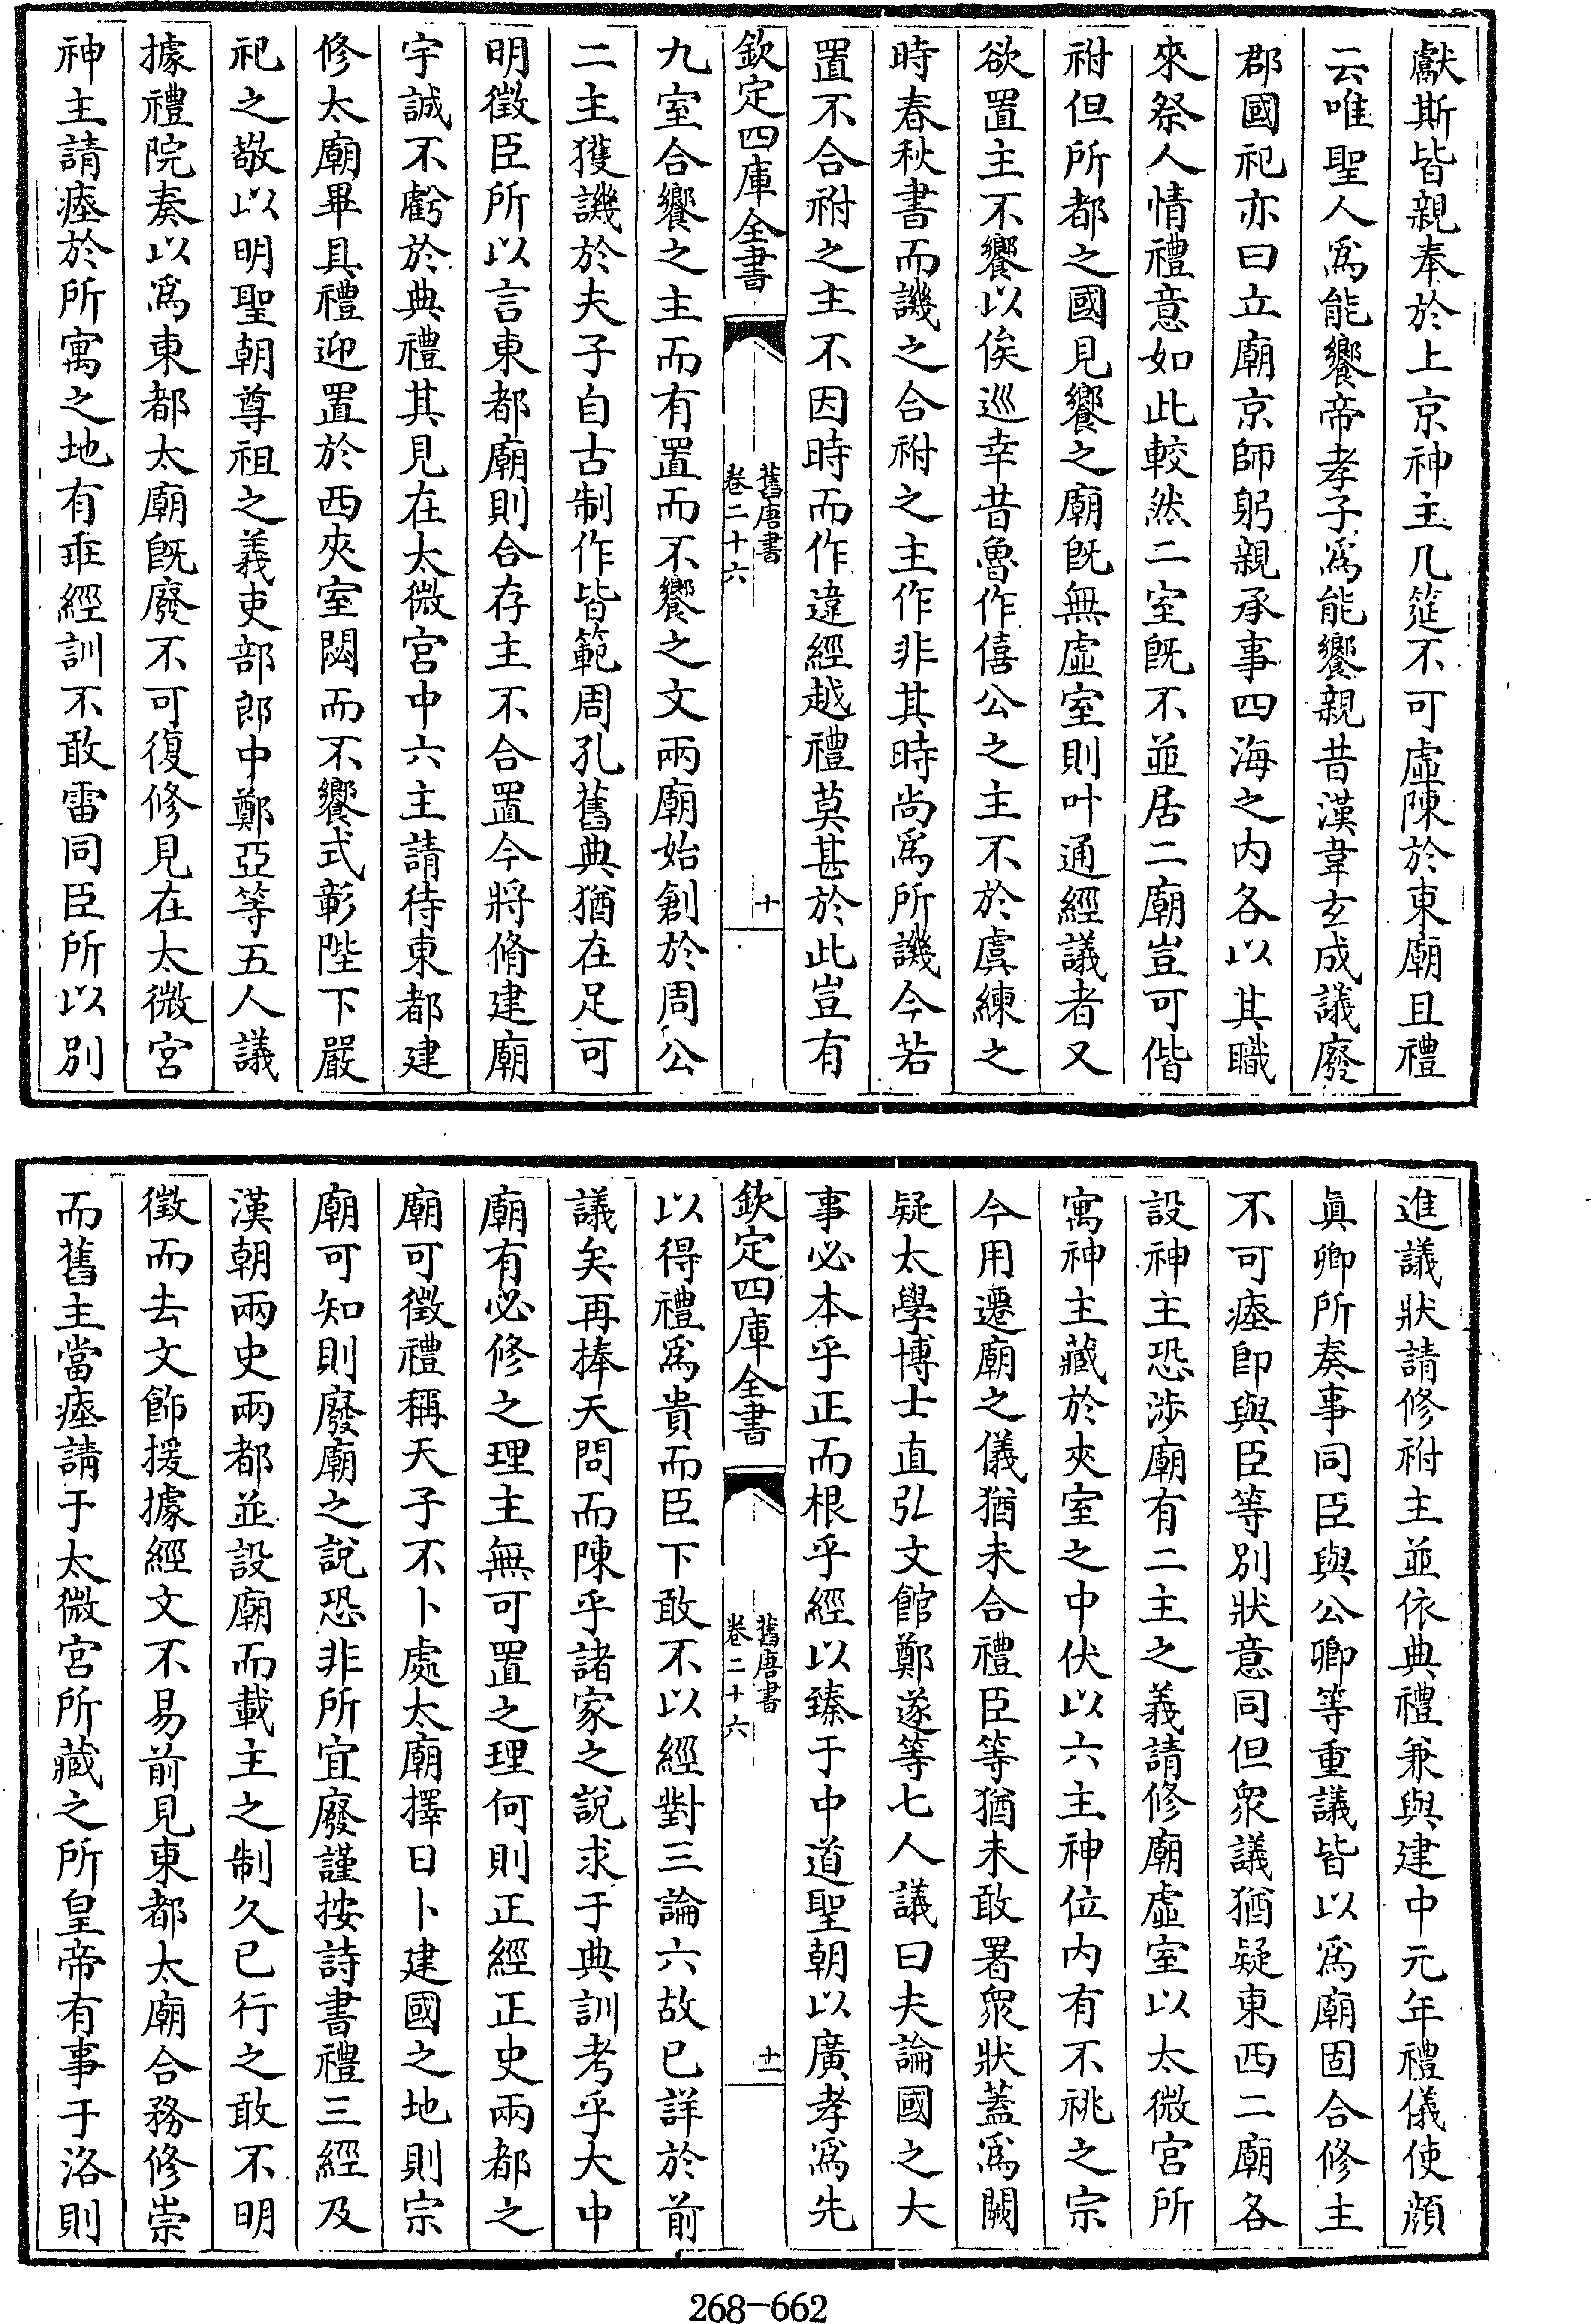 獻斯皆親奉於上京神主几筵不可虛陳於東廟且禮
云唯聖人爲能饗帝孝子爲能饗親昔漢韋玄成議廢
郡國祀亦曰立廟京師躬親承事四海之內各以其職
來祭人情禮意如此較然二室既不並居二廟豈可偕
祔但所都之國見饗之廟既無虛室則叶通經議者又
欲置主不饗以俟巡幸昔魯作僖公之主不於虞練之
時春秋書而譏之合祔之主作非其時尚爲所譏今若
置不合祔之主不因時而作違經越禮莫甚於此豈有
欽定四庫全書
舊唐書
卷二十六
十
九室合饗之主而有置而不饗之文兩廟始創於周公
二主獲譏於夫子自古制作皆範周孔舊典猶在足可
明徵臣所以言東都廟則合存主不合置今將脩建廟
宇誠不虧於典禮其見在太微宮中六主請待東都建
修太廟畢具禮迎置於西夾室閟而不饗式彰陛下嚴
祀之敬以明聖朝尊祖之義吏部郎中鄭亞等五人議
據禮院奏以爲東都太廟既廢不可復修見在太微宮
神主請瘞於所寓之地有乖經訓不敢雷同臣所以別
進議狀請修祔主並依典禮兼與建中元年禮儀使顔
眞卿所奏事同臣與公卿等重議皆以爲廟固合修主
不可瘞卽與臣等別狀意同但衆議猶疑東西二廟各
設神主恐涉廟有二主之義請修廟虛室以太微宮所
寓神主藏於夾室之中伏以六主神位內有不祧之宗
今用遷廟之儀猶未合禮臣等猶未敢署衆狀蓋爲闕
疑太學博士直弘文館鄭遂等七人議曰夫論國之大
事必本乎正而根乎經以臻于中道聖朝以廣孝爲先
欽定四庫全書
舊唐書
卷二十六
十一
以得禮爲貴而臣下敢不以經對三論六故已詳於前
議矣再捧天問而陳乎諸家之說求于典訓考乎大中
廟有必修之理主無可置之理何則正經正史兩都之
廟可徵禮稱天子不卜處太廟擇日卜建國之地則宗
廟可知則廢廟之說恐非所宜廢謹按詩書禮三經及
漢朝兩史兩都並設廟而載主之制久已行之敢不明
徵而去文飾援據經文不易前見東都太廟合務修崇
而舊主當瘞請于太微宮所藏之所皇帝有事于洛則
268-662